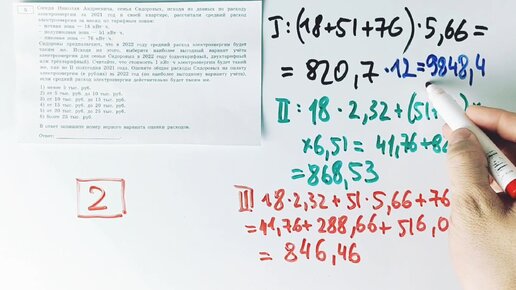 5
Сидя Николай Андреевич, семья Сидоровых, исходя из данных по расходу
электроэнергии за 2021 год в своей квартире, рассчитали средний расход
электроэнергии за месяц по тарифным зонам:
– ночная зона — 18 кВт·ч.
– полупиковая зона — 51 кВт·ч.
– пиковая зона — 76 кВт·ч.
Сидоровы предполагают, что в 2022 году средний расход электроэнергии будет
таким же. Исходя из этого, выберите наиболее выгодный вариант учёта
электроэнергии этой семьи в 2022 году (однотарифный, двухтарифный
или трёхтарифный). Считайте, что стоимость 1 кВт·ч электроэнергии будет такой
же, как во II полугодии 2021 года. Оцените общие расходы Сидоровых на оплату
электроэнергии (в рублях) за 2022 год (по наиболее выгодному варианту учёта),
если средний расход электроэнергии действительно будет таким же.
1) менее 5 тыс. руб.
2) от 5 тыс. руб. до 10 тыс. руб.
3) от 10 тыс. руб. до 15 тыс. руб.
4) от 15 тыс. руб. до 20 тыс. руб.
5) от 20 тыс. руб. до 25 тыс. руб.
6) более 25 тыс. руб.
В ответе запишите номер верного варианта оценки расходов.
Ответ:
I: (18+51+76)·5,66=
=820,7·12=9848,4
II: 18·2,32+(51+
×6,51=41,76+8
=868,53
2
III 18·2,32+51·5,66+76
=41,76+288,66+516,0
=846,46